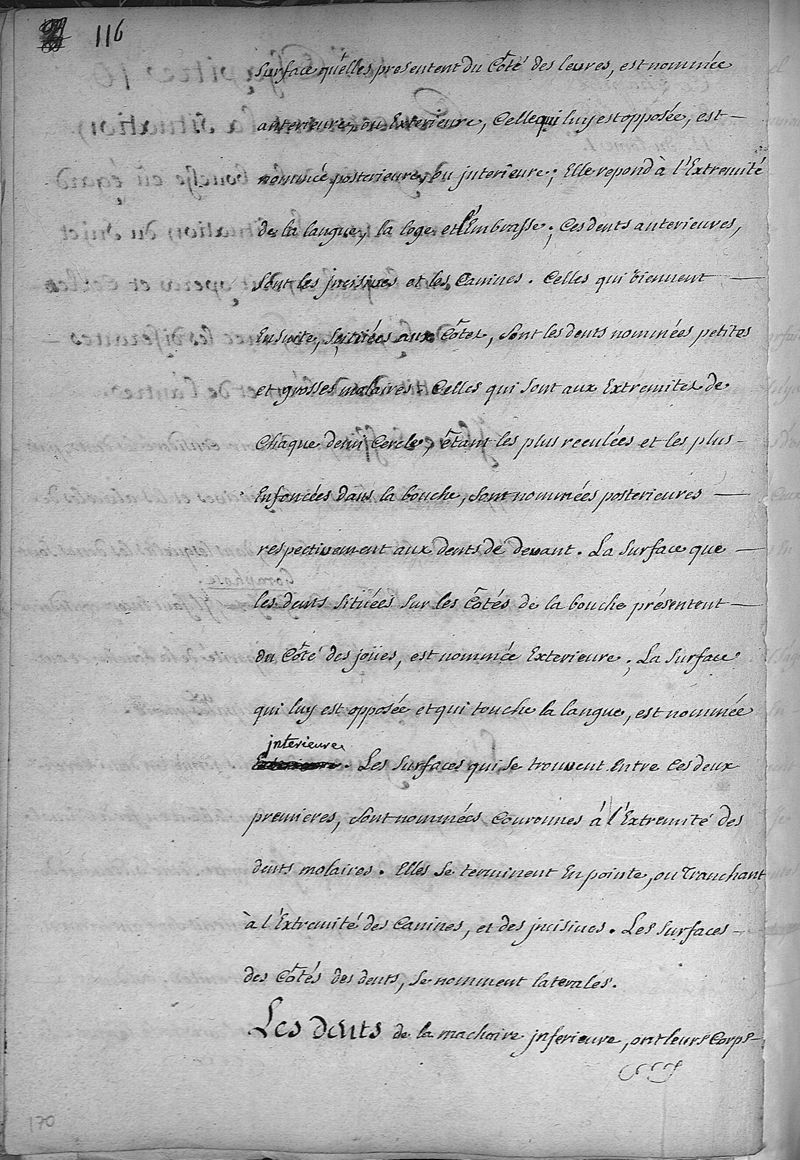 116
surface qu'elles presentent du Côté des levres, est nommée
anterieure, ou Exterieure, Celle qui luy est opposée, est —
nommée posterieure, ou jnterieure; Elle repond à l'Extremité
de la langue, la loge et l'Embrasse; Ces dents anterieures,
sont les jncisives et les Canines. Celles qui viennent —
Ensuite, scituées aux Côtez, sont les dents nommées petites
et grosses molaires. Celles qui sont aux Extremitez de
Chaque demi Cercle, êtant les plus reculées et les plus -
Enfoncées dans la bouche, sont nommées posterieures —
respectivement aux dents de devant. La surface que —
les dents situées sur les Côtés de la bouche présentent —
du Côté des joües, est nommée Exterieure; La surface
qui luy est opposée et qui touche la langue, est nommée
jnterieure
. Les surfaces qui se trouvent entre ces deux
premieres, sont nommées Couronnes à l'Extremité des
dents molaires. Elles se terminent En pointe, ou Tranchant
à l'Extremité des Canines, et des jncisives. Les surfaces —
des Côtés des dents, se nomment laterales.
Les dents de la machoire jnferieure, ont leurs Corps -
170